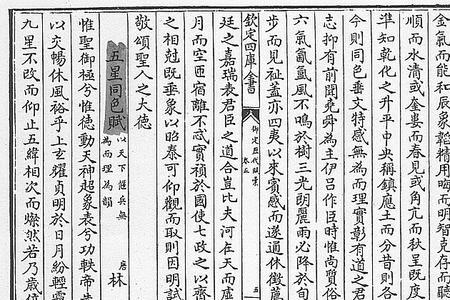 金氣而能和辰象智精用而明智克存而聽
順而水清或奎婁而春見或角亢而秋呈既度
準知乾化之升平中央稱鎮應土而分昔則各
今則同色垂文特感無為而理實彰有道之君
志抑有前聞堯舜為主伊吕作臣時惟尚質俗
六氣氤氲風不鳴於樹三光朗麗雨必降於旬
步而見祉蓋亦四夷以來賓感而遂通休徵薦
欽定四庫全書
御定歷代賦彙
卷五
五
廷之嘉瑞表君臣之道合豈比夫河在天而虛
月而空匝宿離不忒實禎於國使七政之以齊
之相尅既垂象以昭泰可仰觀而取則因明試
敬頌聖人之大德
五星同色賦 以天下偃兵無
為而理為韻 唐 林
惟聖御極兮惟德動天神超象表兮功軼帝
以交暢休風裕乎上𤣥耀貞明於日月紛輕靄
九星不改而仰止五緯相次而燦然若乃歲